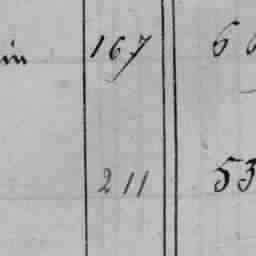 in 167 6
211 53